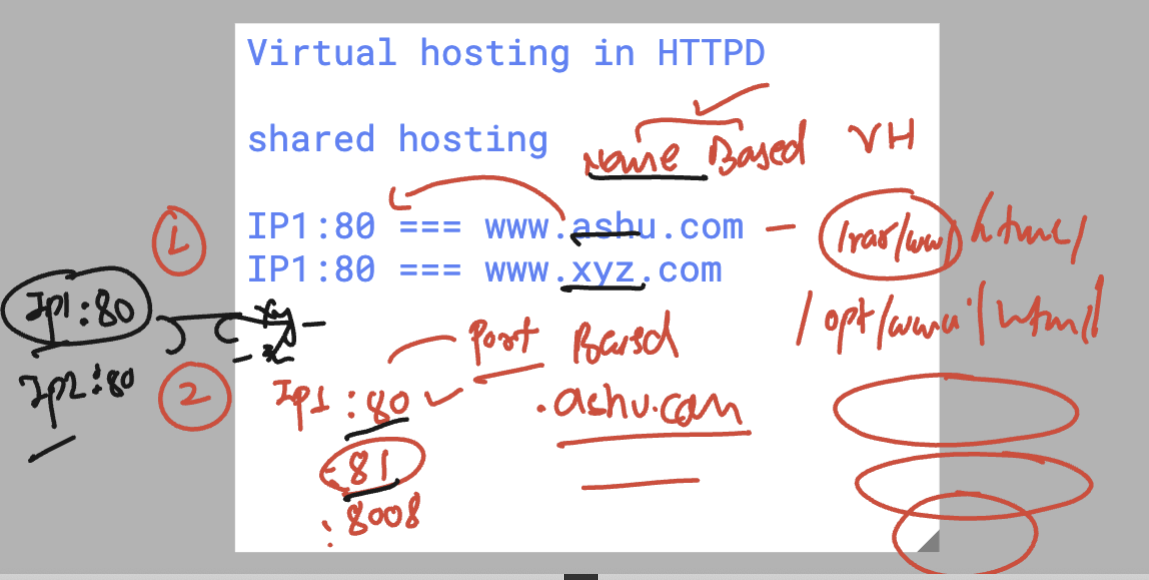 Virtual hosting in HTTPD
shared hosting
Name Based VH
IP1:80 === www.ashu.com - /var/www/html/
IP1:80 === www.xyz.com
/opt/www/html/
1
Ip1:80
Ip2:80
2
Port Based
Ip1:80
.ashu.com
:81
:8008